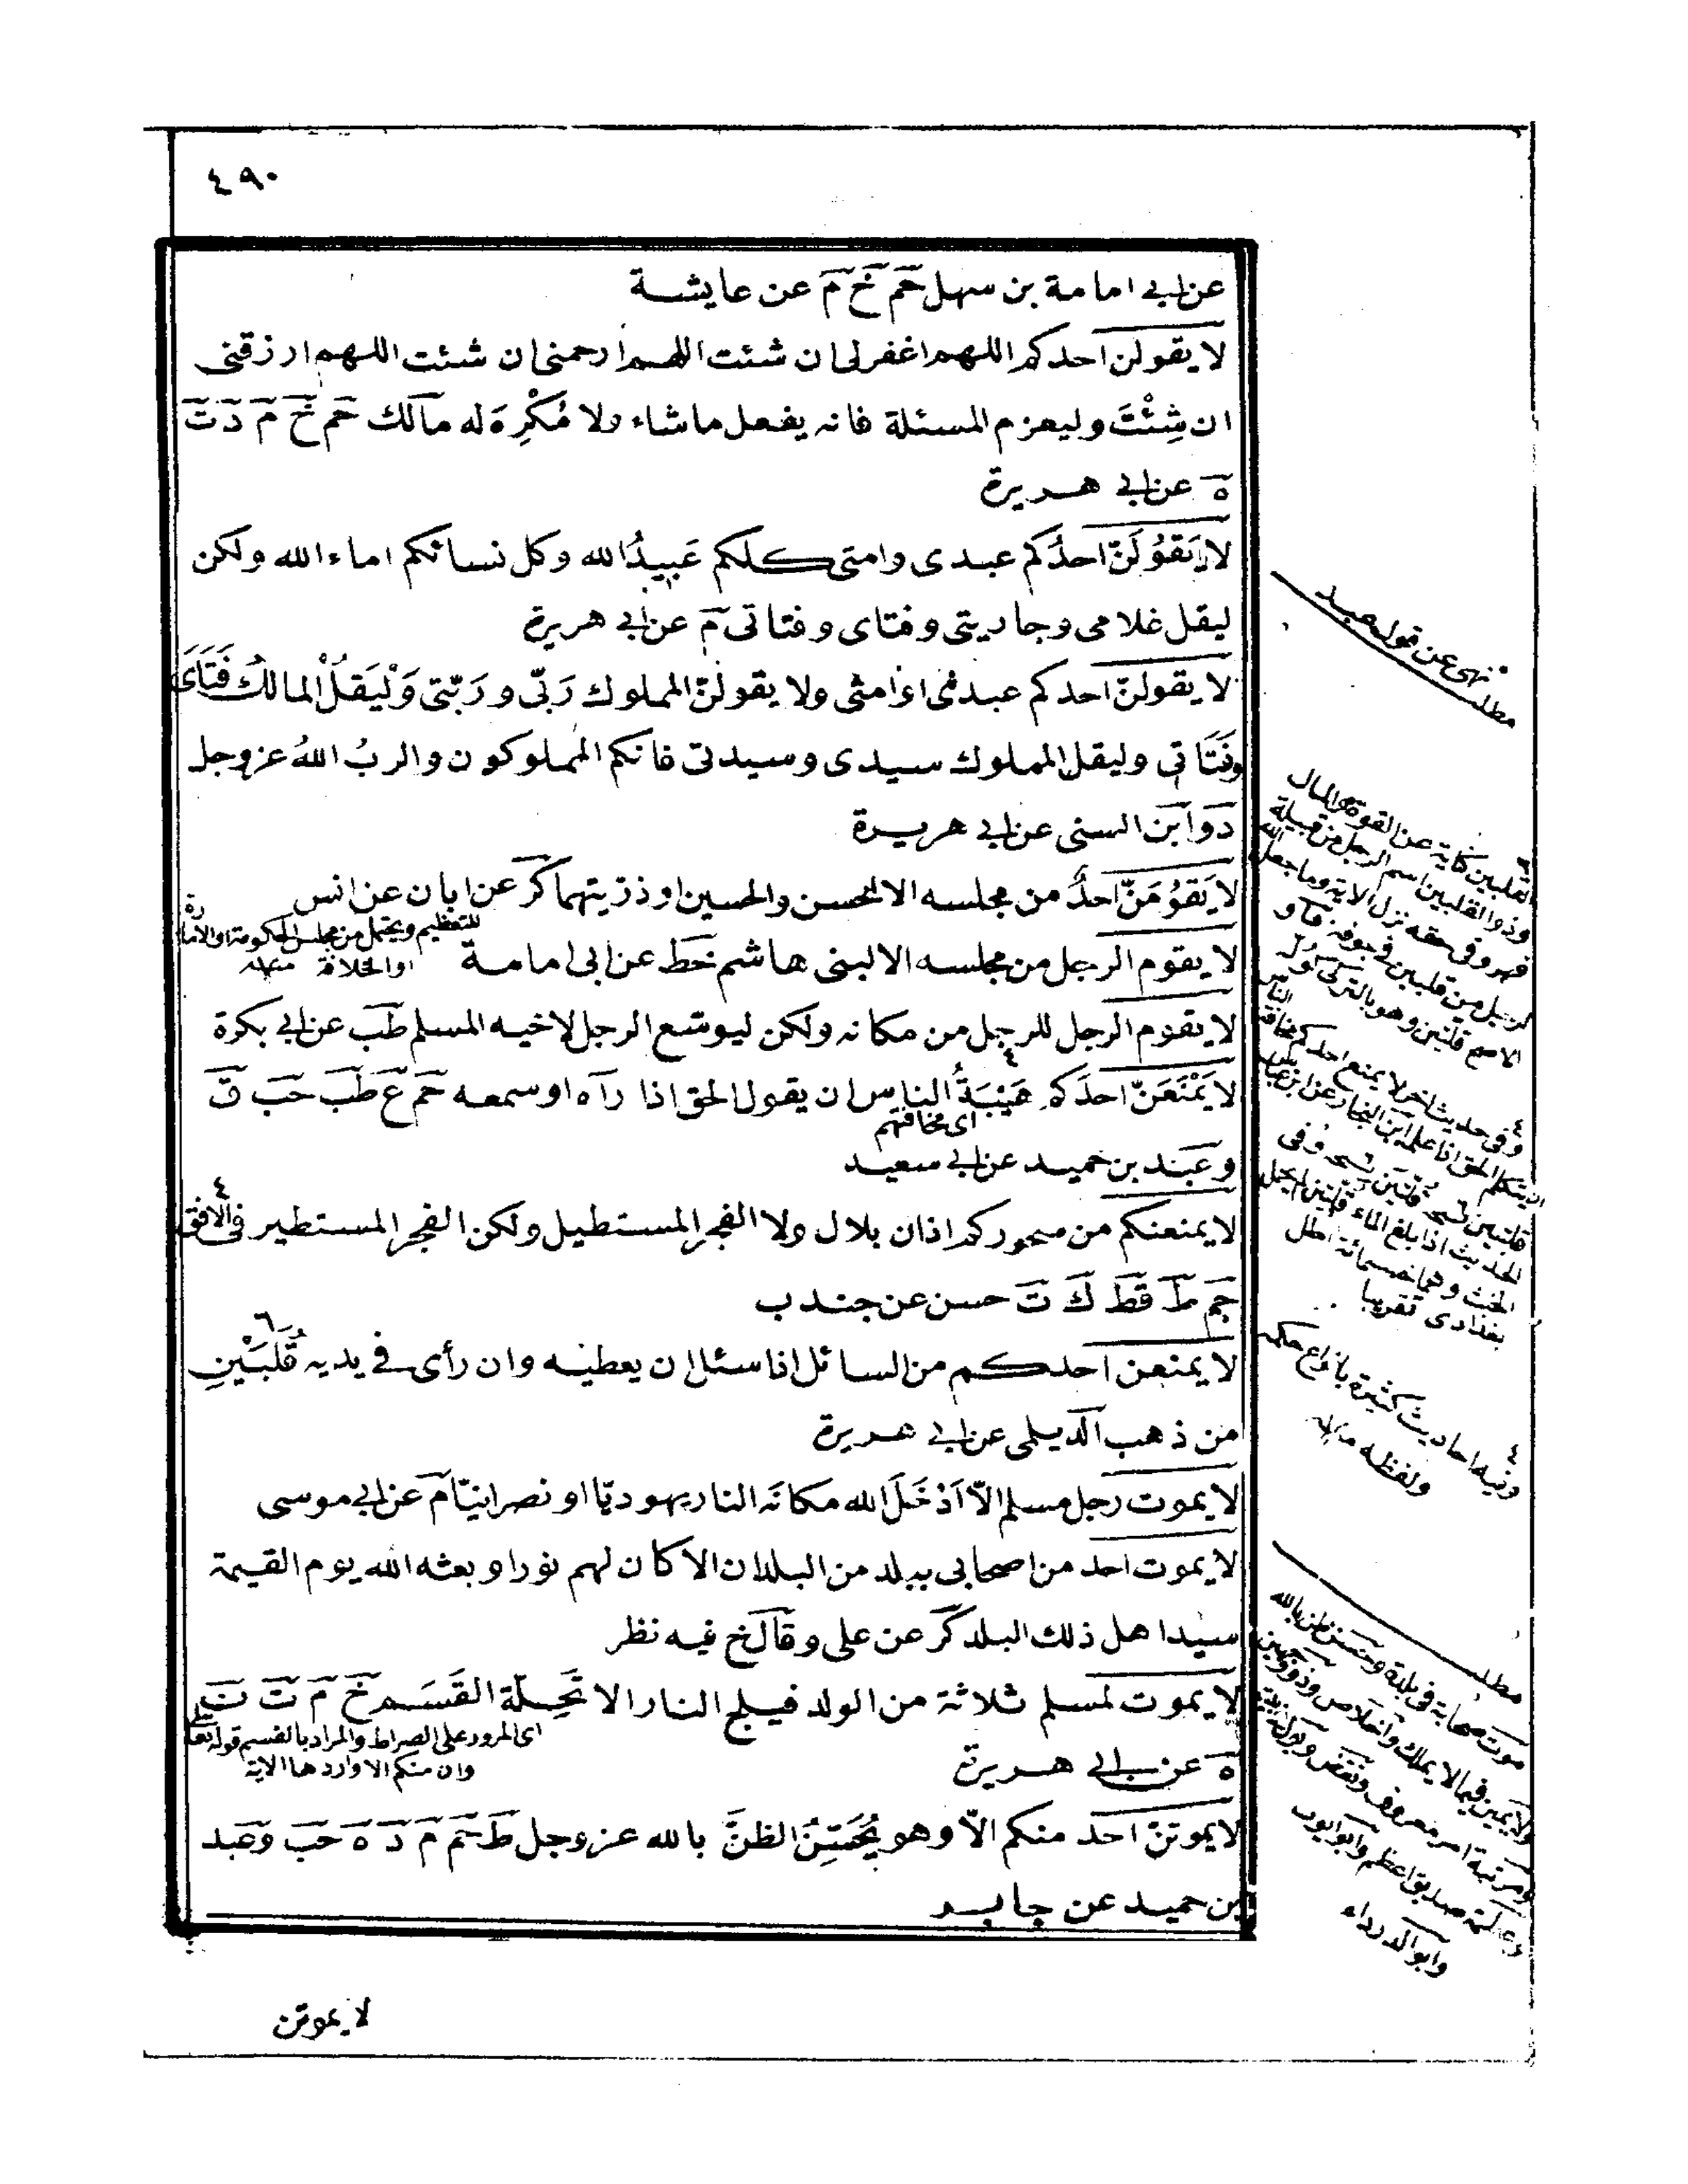 ٤٩٠
عن ابى امامة بن سهل حم خ م عن عايشة
لا يقولن احدكم اللهم اغفر لى ان شئت اللهم ارحمنى ان شئت اللهم ارزقنى
ان شِئْتَ وليعزم المسئلة فانه يفعل ما شاء ولا مُكْرِهَ له مالك حم خ م د ت
ه عن ابى هريرة
لا يَقوُلَنّ احدُكم عبدى وامتى كلكم عَبِيدُ الله وكل نسائكم اماء الله ولكن
ليقل غلامى وجاريتى وفتاى وفتاتى م عن ابى هريرة
لا يقولنّ احدكم عبدى او امتى ولا يقولنّ المملوك رَبّى ورَبّتى وَلْيَقلْ المالكُ فَتَاىَ
وفَتَاتى وليقل المملوك سيدى وسيدتى فانكم المملوكون والربُ اللهُ عزوجل
د وابن السنى عن ابى هريرة
لا يَقوُمَنّ احدٌ من مجلسه الا للحسن والحسين او ذريتهما كر عن ابان عن انس
للتعظيم ويحتمل من مجلس الحكومة او الامارة
لا يقوم الرجل من مجلسه الا لبنى هاشم خط عن ابى امامة
او الخلافة منه
لا يقوم الرجل للرجل من مكانه ولكن ليوسّع الرجل لاخيه المسلم طب عن ابى بكرة
لا يَمْنَعَنّ احدَكم هَيْبَةُ الناس ان يقول الحق اذا رآه او سمعه حم ع طب حب ق
اى مخافتهم
وعبد بن حميد عن ابى سعيد
لا يمنعنكم من سحوركم اذان بلال ولا الفجر المستطيل ولكن الفجر المستطير فى الافق
حم ط قط ك ت حسن عن جندب
لا يمنعن احدكم من السائل اذا سئل ان يعطيه وان رأى فى يديه قُلْبَيْنِ
من ذهب الديلمى عن ابى هريرة
لا يموت رجل مسلم الاّ اَدْخَلَ الله مكانَه النار يهوديّا او نصرانيّا م عن ابى موسى
لا يموت احد من اصحابى ببلد من البلدان الا كان لهم نورا وبعثه الله يوم القيمة
سيدا هل ذلك البلد كر عن على وقال خ فيه نظر
لا يموت لمسلم ثلاثة من الولد فيلج النار الا تَحِلّة القَسَم خ م ت ن
اى المرور على الصراط والمراد بالقسم قوله تعالى
وان منكم الا واردها الاية
ه عن ابى هريرة
لا يموتنّ احد منكم الاّ وهو يُحْسِنُ الظنَّ بالله عزوجل ط حم م د ه حب وعبد
بن حميد عن جابر
لا يموتن
مطلب نهى عن قوله عبد
القلبين كناية عن القوة والمال
وذو القلبين اسم الرجل من قبيلة
فهر وفى حقه نزل الاية وما جعل الله
لرجل من قلبين فى جوفه
وفى حديث اخر لا يمنع احدكم مخافة الناس
ان يتكلم الحق اذا علمه ابن النجار عن ابن عباس
الحديث اذا بلغ الماء قلتين لم يحمل
الخبث وهما خمسمائة رطل
بغدادى تقريبا
وفيه احاديث كثيرة
مطلب
موت صحابة فى بلدة وحسن ظن بالله
وابو الدرداء